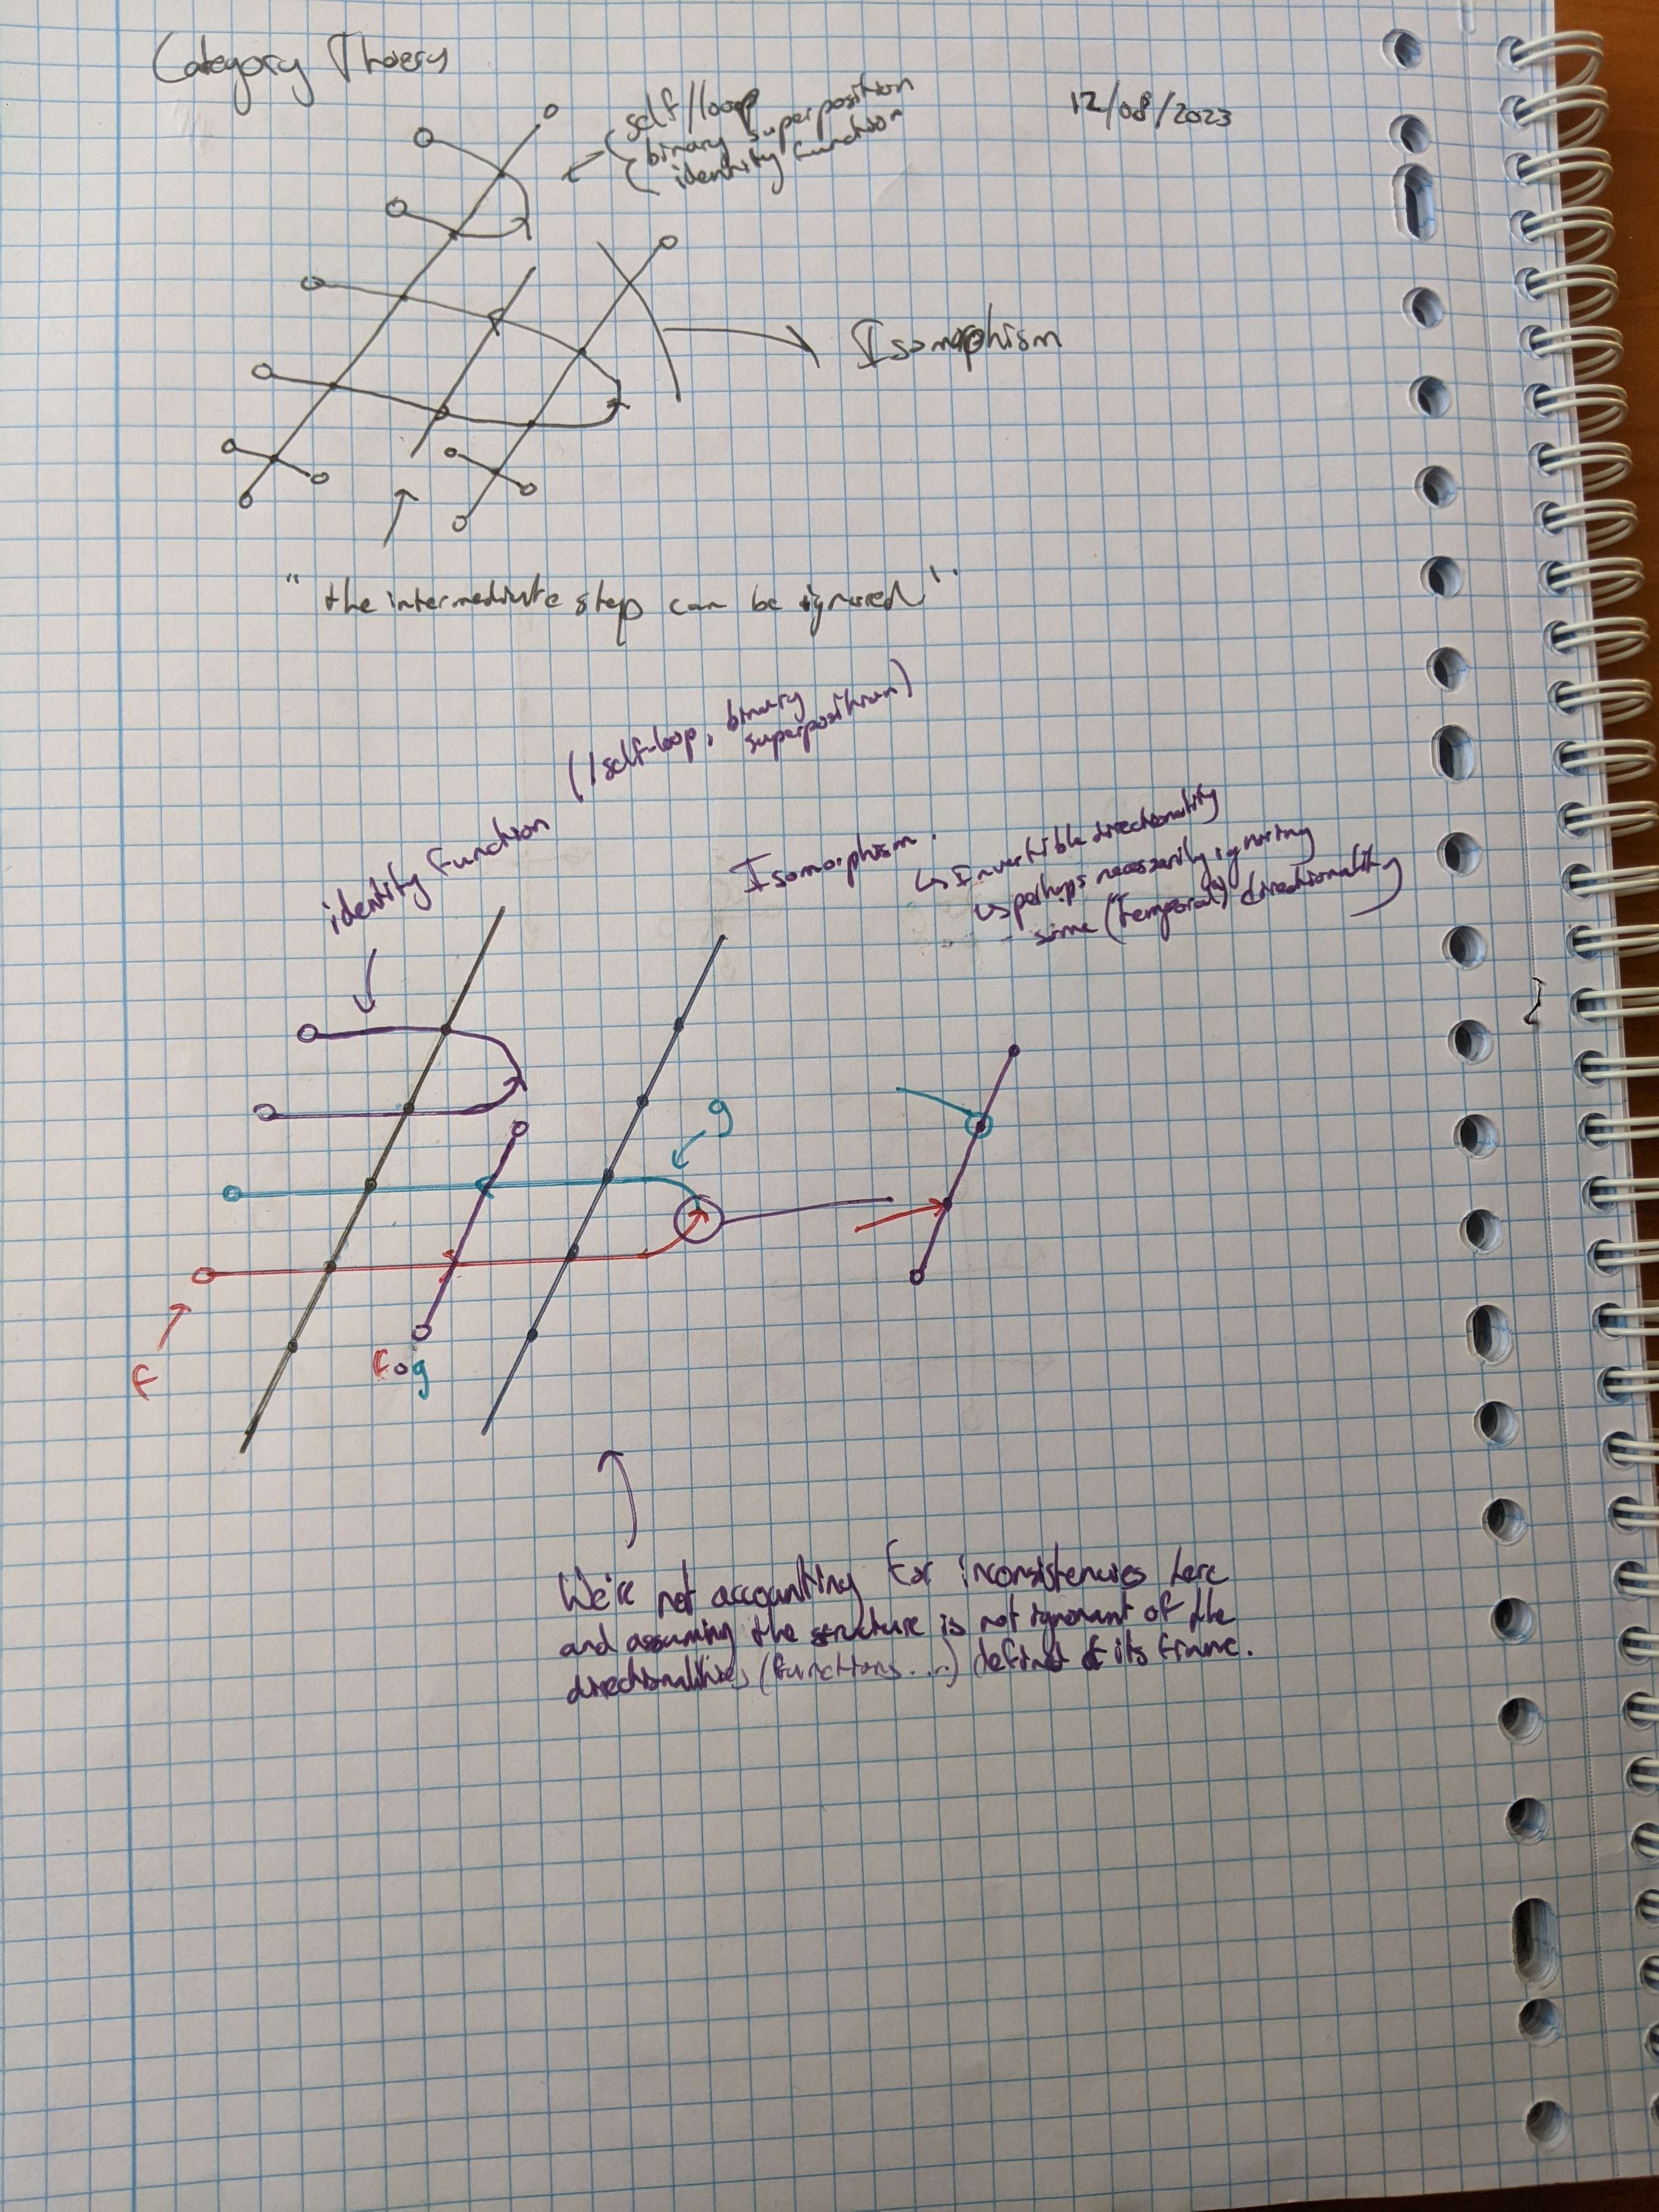 Category Theory
12/08/2023
self/loop
binary superposition
identity function
Isomorphism
"the intermediate step can be ignored"
(/self-loop, binary
superposition)
identity function
Isomorphism.
↳ Invertible directionality
↳ perhaps necessarily ignoring
some (temporal) directionality
g
F
F∘g
We're not accounting for inconsistencies here
and assuming the structure is not ignorant of the
directionalities (functions...) defined of its frame.